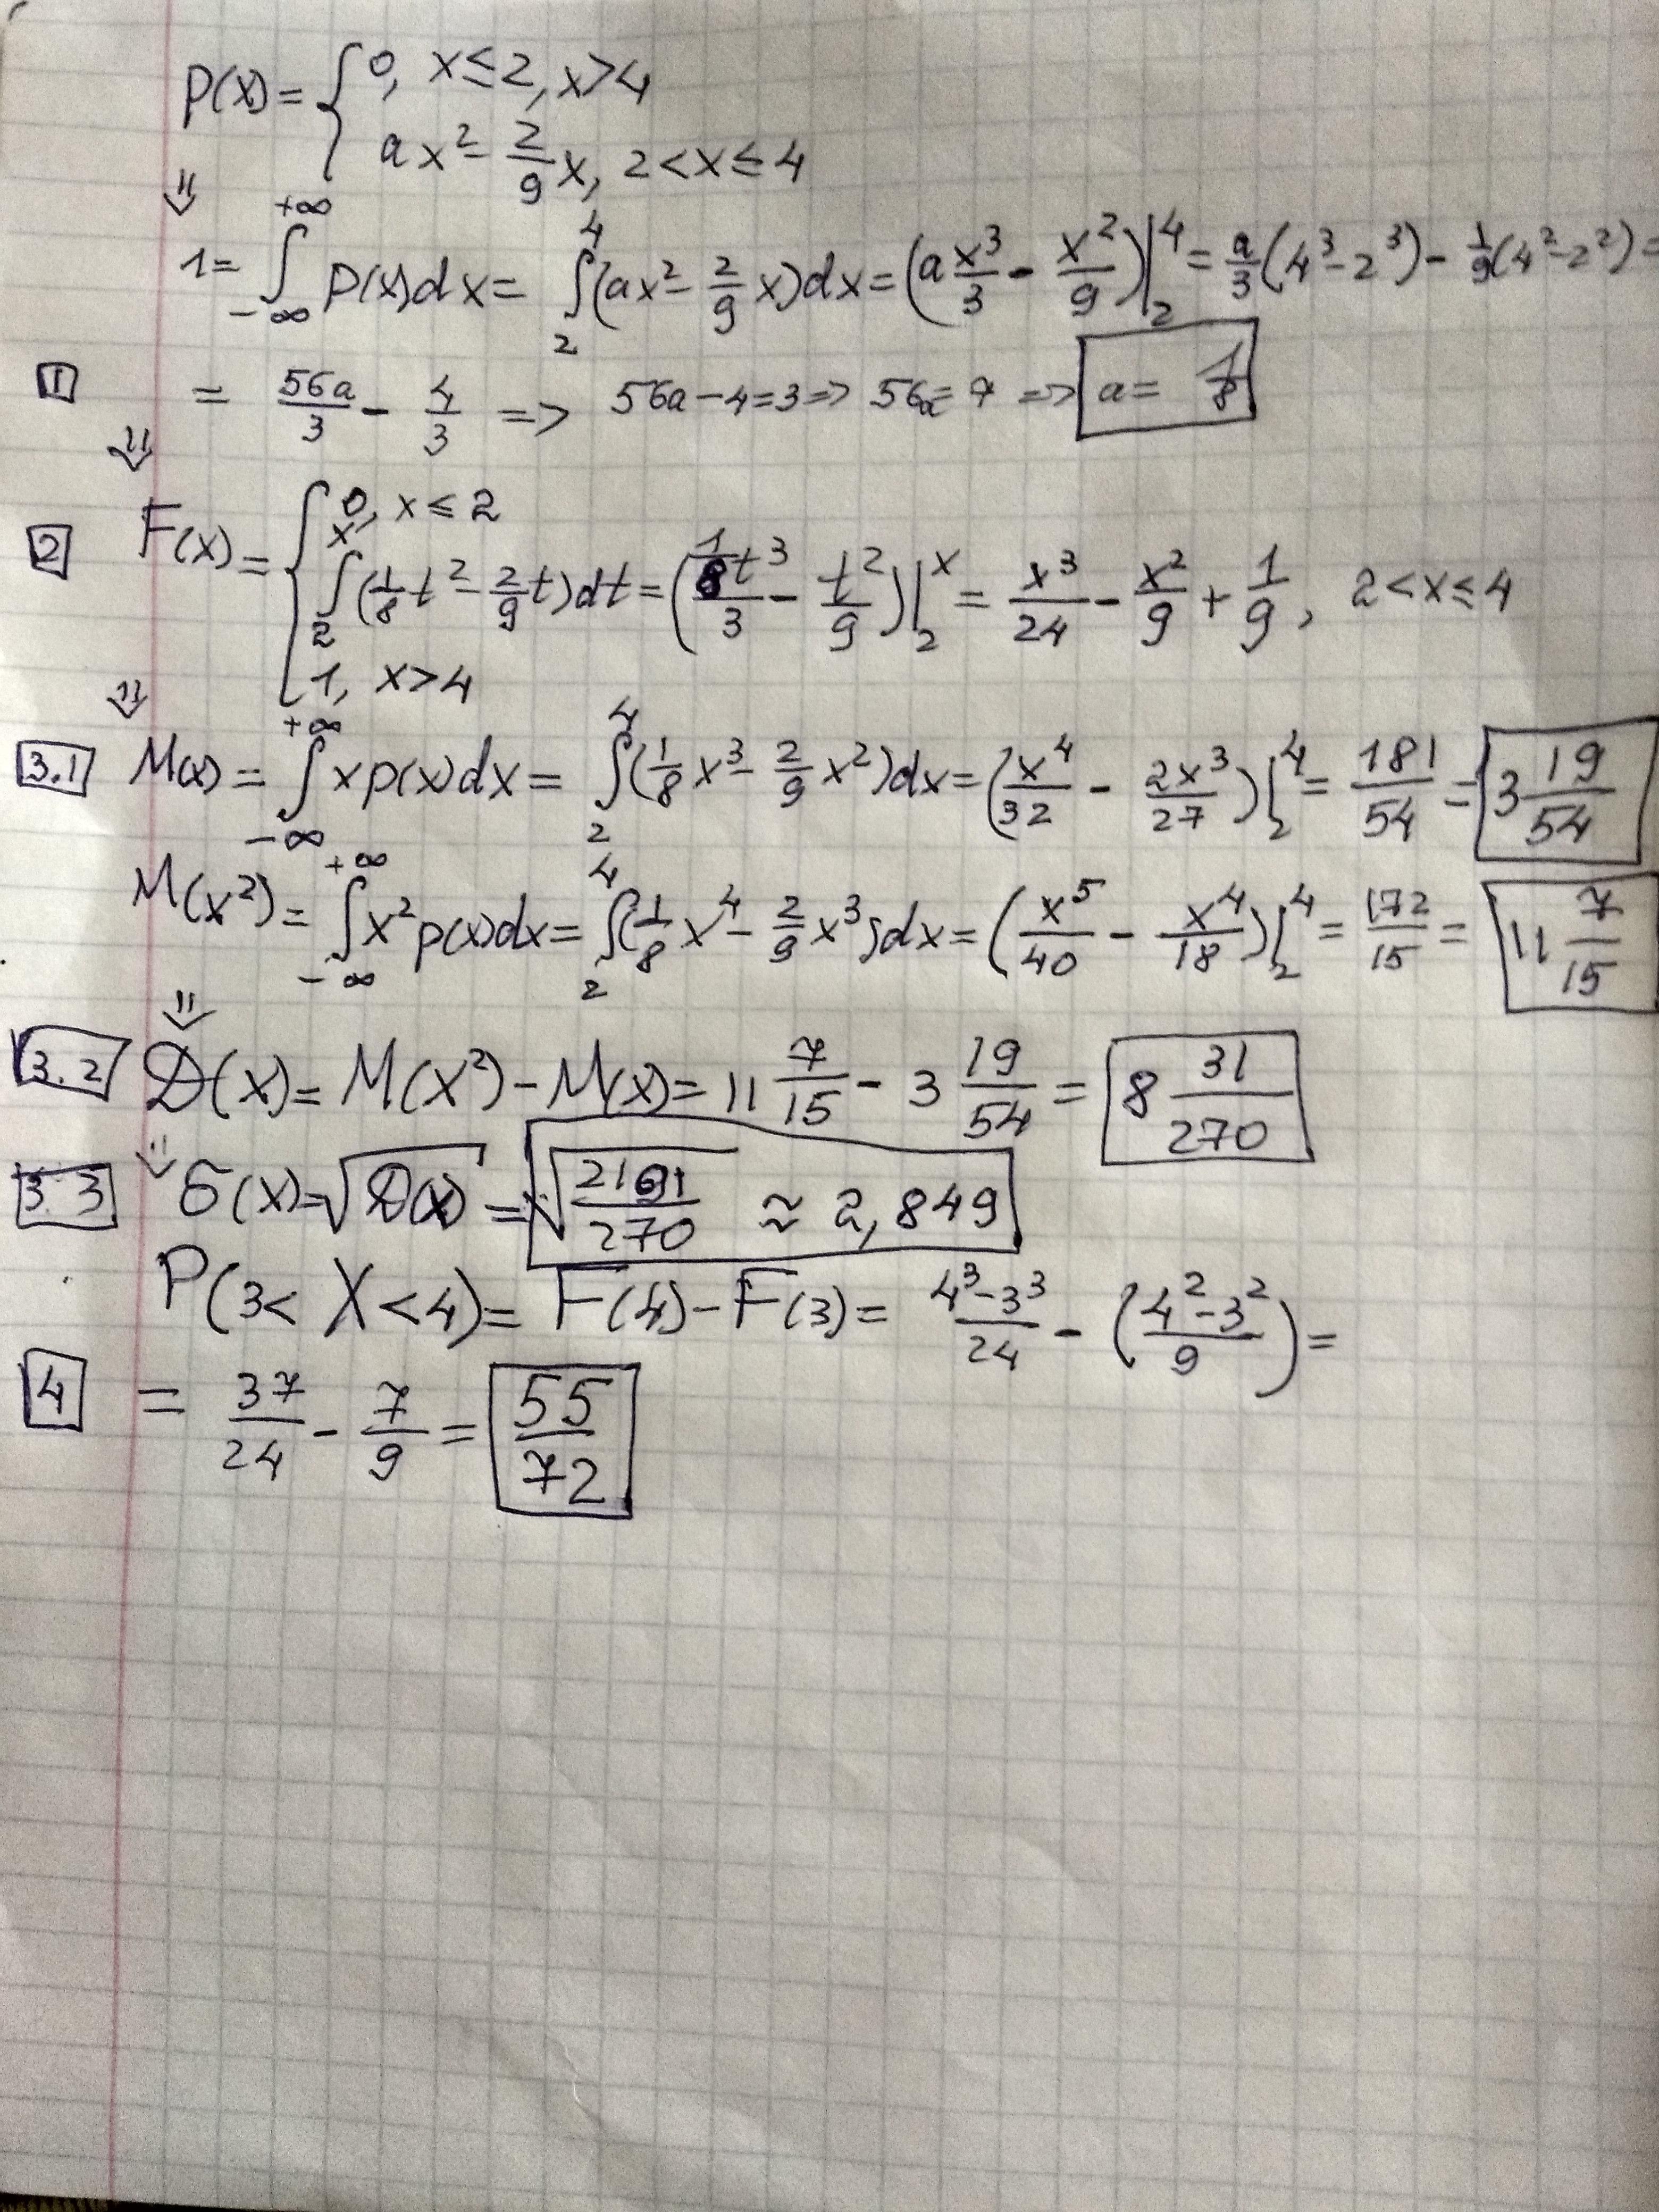 p(x) = { 0, x ≤ 2, x > 4
ax² - 2/9 x, 2 < x ≤ 4
⇓
1 = ∫_{-∞}^{+∞} p(x)dx = ∫_2^4 (ax² - 2/9 x)dx = (a x³/3 - x²/9)|_2^4 = a/3 (4³ - 2³) - 1/9 (4² - 2²) =
1 = 56a/3 - 4/3 => 56a - 4 = 3 => 56a = 7 => a = 1/8
⇓
2 F(x) = { 0, x ≤ 2
∫_2^x (1/8 t² - 2/9 t)dt = (1/8 t³/3 - t²/9)|_2^x = x³/24 - x²/9 + 1/9, 2 < x ≤ 4
1, x > 4
⇓
3.1 M(x) = ∫_{-∞}^{+∞} xp(x)dx = ∫_2^4 (1/8 x³ - 2/9 x²)dx = (x⁴/32 - 2x³/27)|_2^4 = 181/54 = 3 19/54
M(x²) = ∫_{-∞}^{+∞} x² p(x)dx = ∫_2^4 (1/8 x⁴ - 2/9 x³)dx = (x⁵/40 - x⁴/18)|_2^4 = 172/15 = 11 7/15
⇓
3.2 D(x) = M(x²) - M(x) = 11 7/15 - 3 19/54 = 8 31/270
⇓
3.3 σ(x) = √D(x) = √(2191/270) ≈ 2,849
P(3 < X < 4) = F(4) - F(3) = (4³ - 3³)/24 - ((4² - 3²)/9) =
4 = 37/24 - 7/9 = 55/72